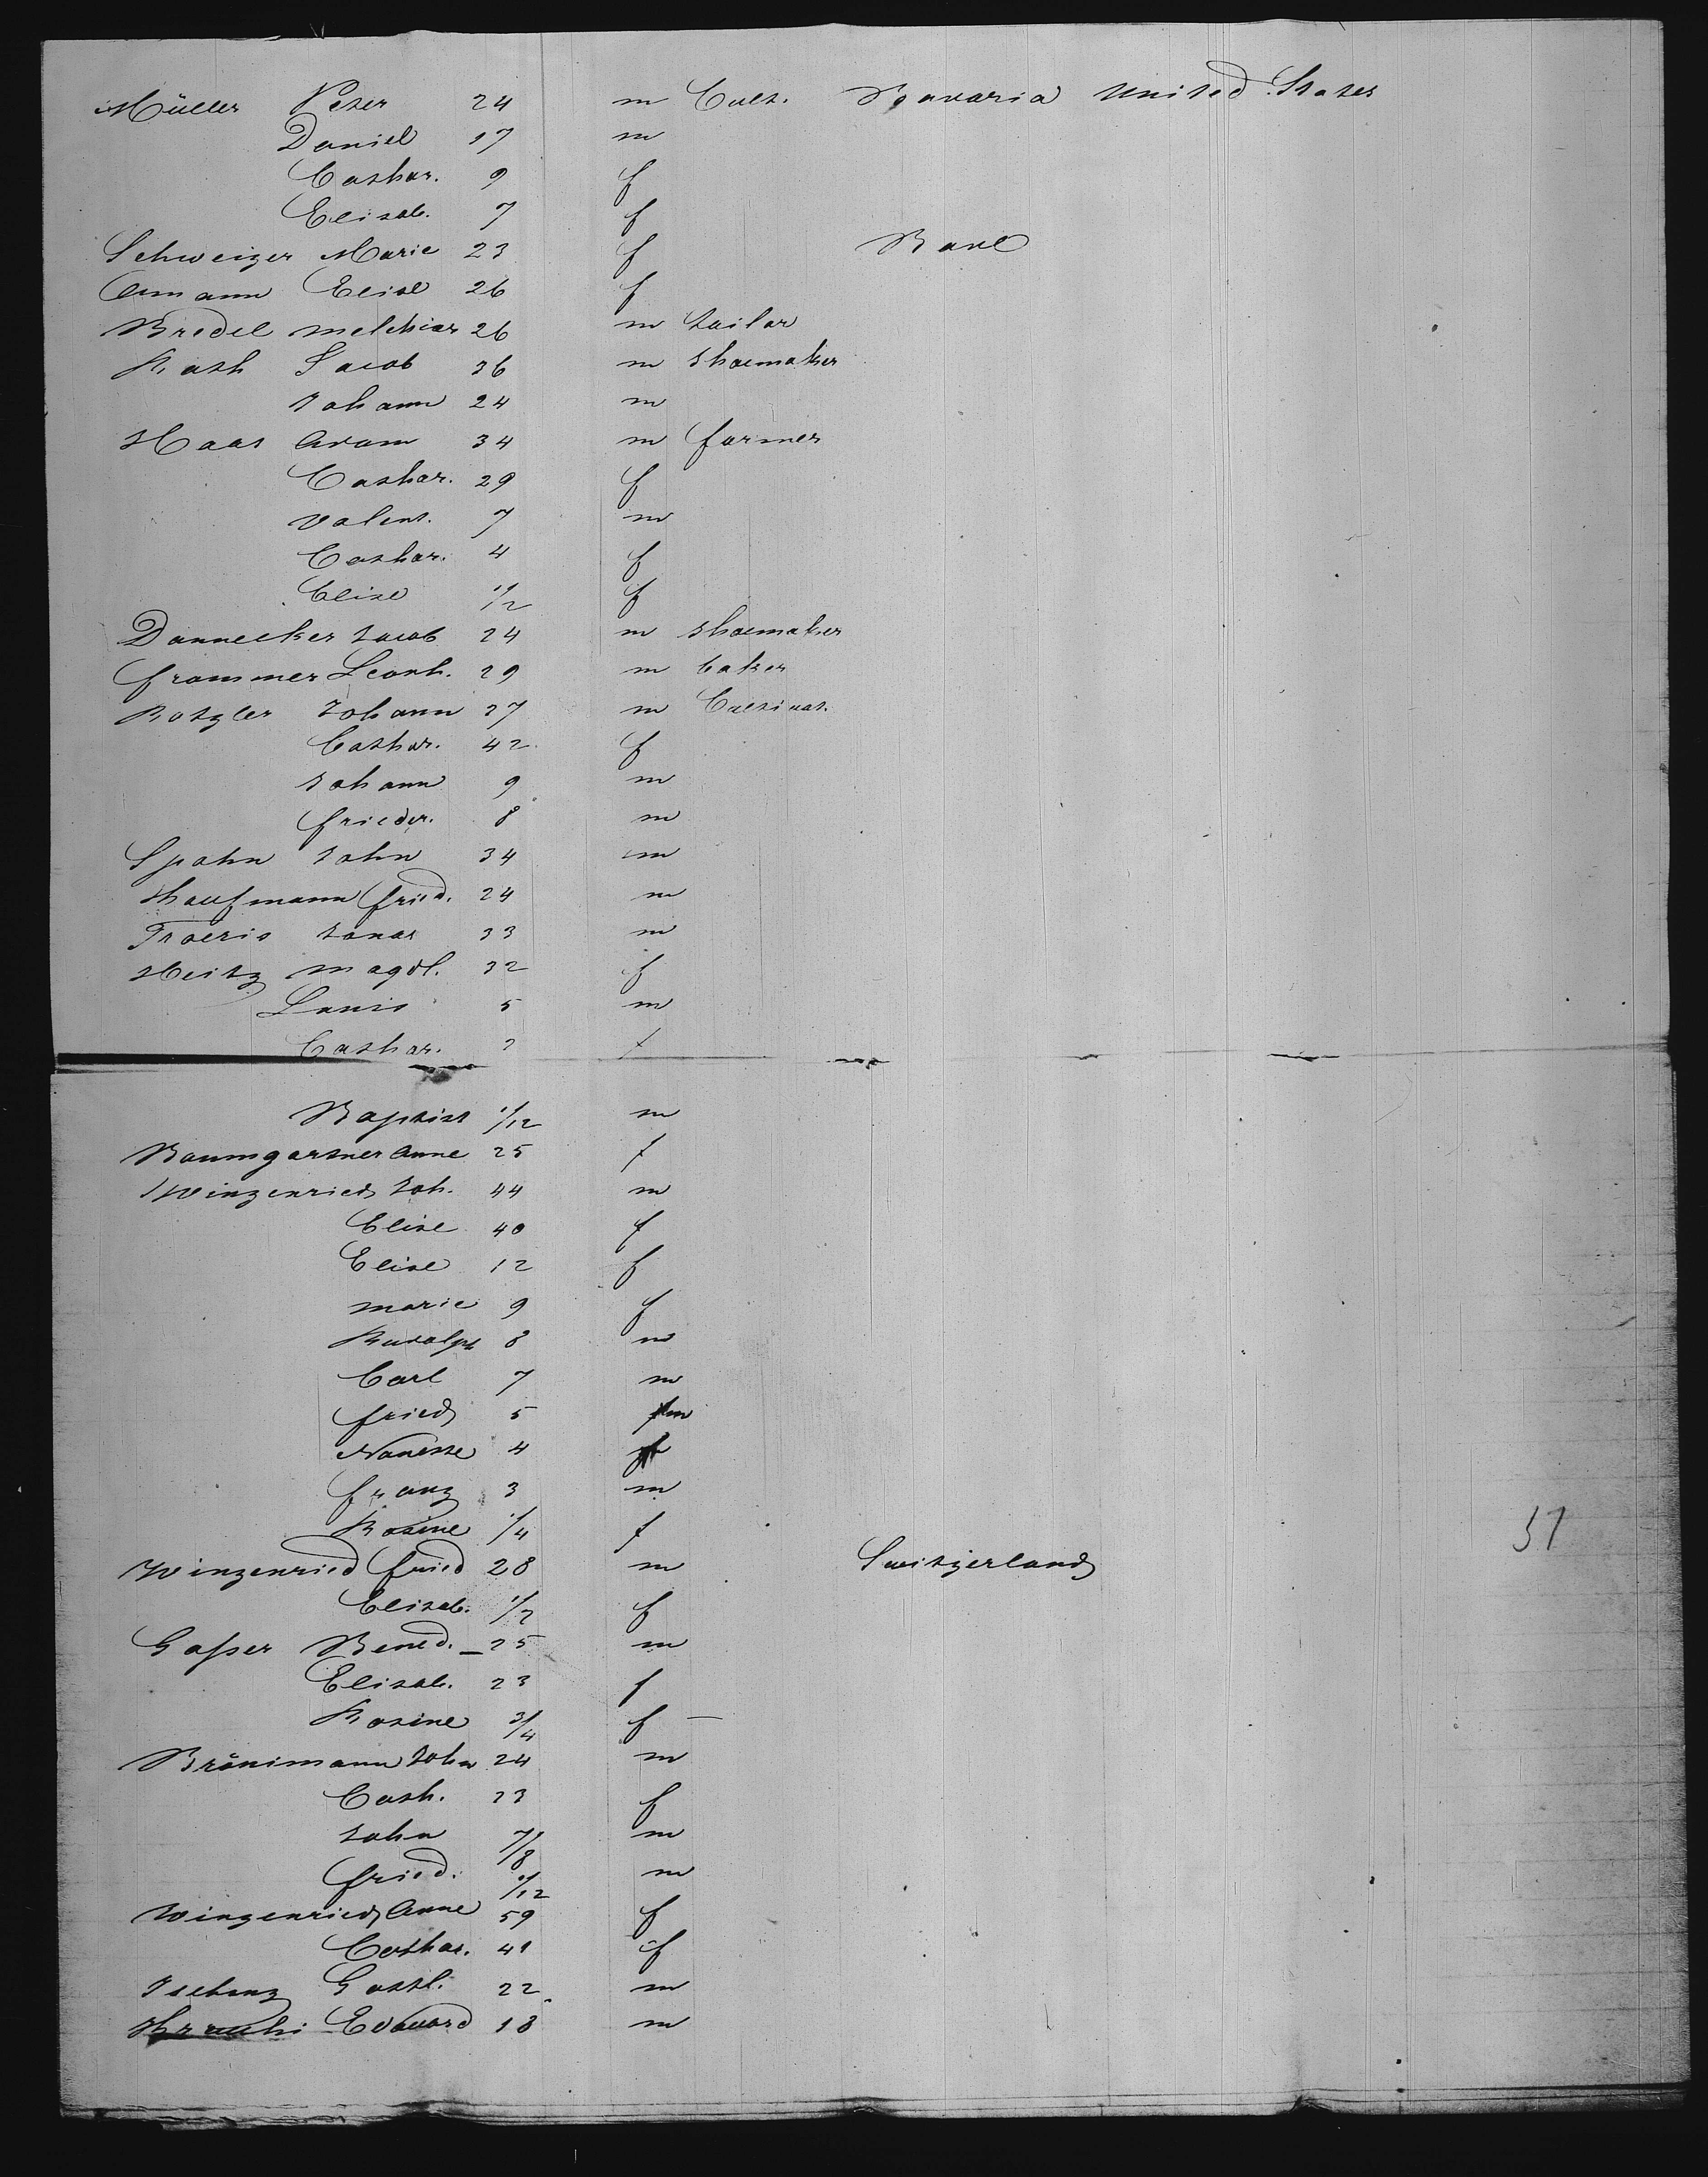 Müller Peter 24 m Cult. Bavaria United States
Daniel 17 m
Cathar. 9 f
Elisab. 7 f
Schweizer Marie 23 f Basel
Elise 26 f
Bredel Melchior 26 m tailor
Roth Jacob 36 m shoemaker
Johann 24 m
Haas Adam 34 m farmer
Cathar. 29 f
Valent. 7 m
Cathar. 4 f
Elise 1/2 f
Dannecker Jacob 24 m shoemaker
Frommer Leonh. 29 m baker
Rotzler Johann 37 m Cultivat.
Cathar. 42 f
Johann 9 m
Frieder. 8 m
Spohn John 34 m
Kaufmann Fried. 24 m
33 m
Heitz Magdl. 32 f
Louis 5 m
Cathar. f
Baptist 1/12 m
Baumgartner Anne 25 f
Winzenried Joh. 44 m
Elise 40 f
Elise 12 f
Marie 9 f
Rudolph 8 m
Carl 7 m
Fried 5 m
Nanette 4 f
Franz 3 m
Rosine 1/4 f
Winzenried Fried 28 m Switzerland
Elisab. 1/2 f
Gasser Bened. 25 m
Elisab. 23 f
Rosine 3/4 f —
Brönimann John 24 m
Cath. 23 f
John 7/8 m
Fried. 1/12 m
Winzenried Anne 59 f
Cathar. 41 f
Gottl. 22 m
Edouard 18 m
51